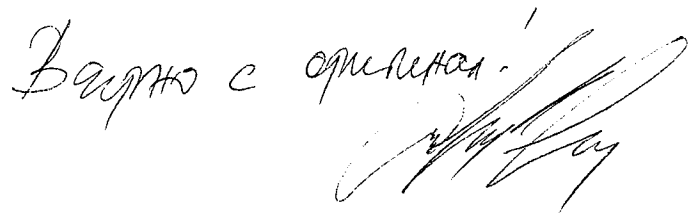 Вярно с оригинал!